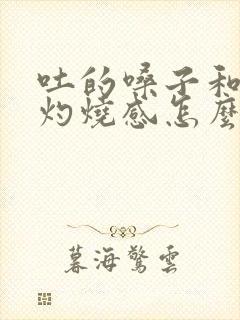 吐的嗓子和
灼燒感怎麼
暮海驚雲